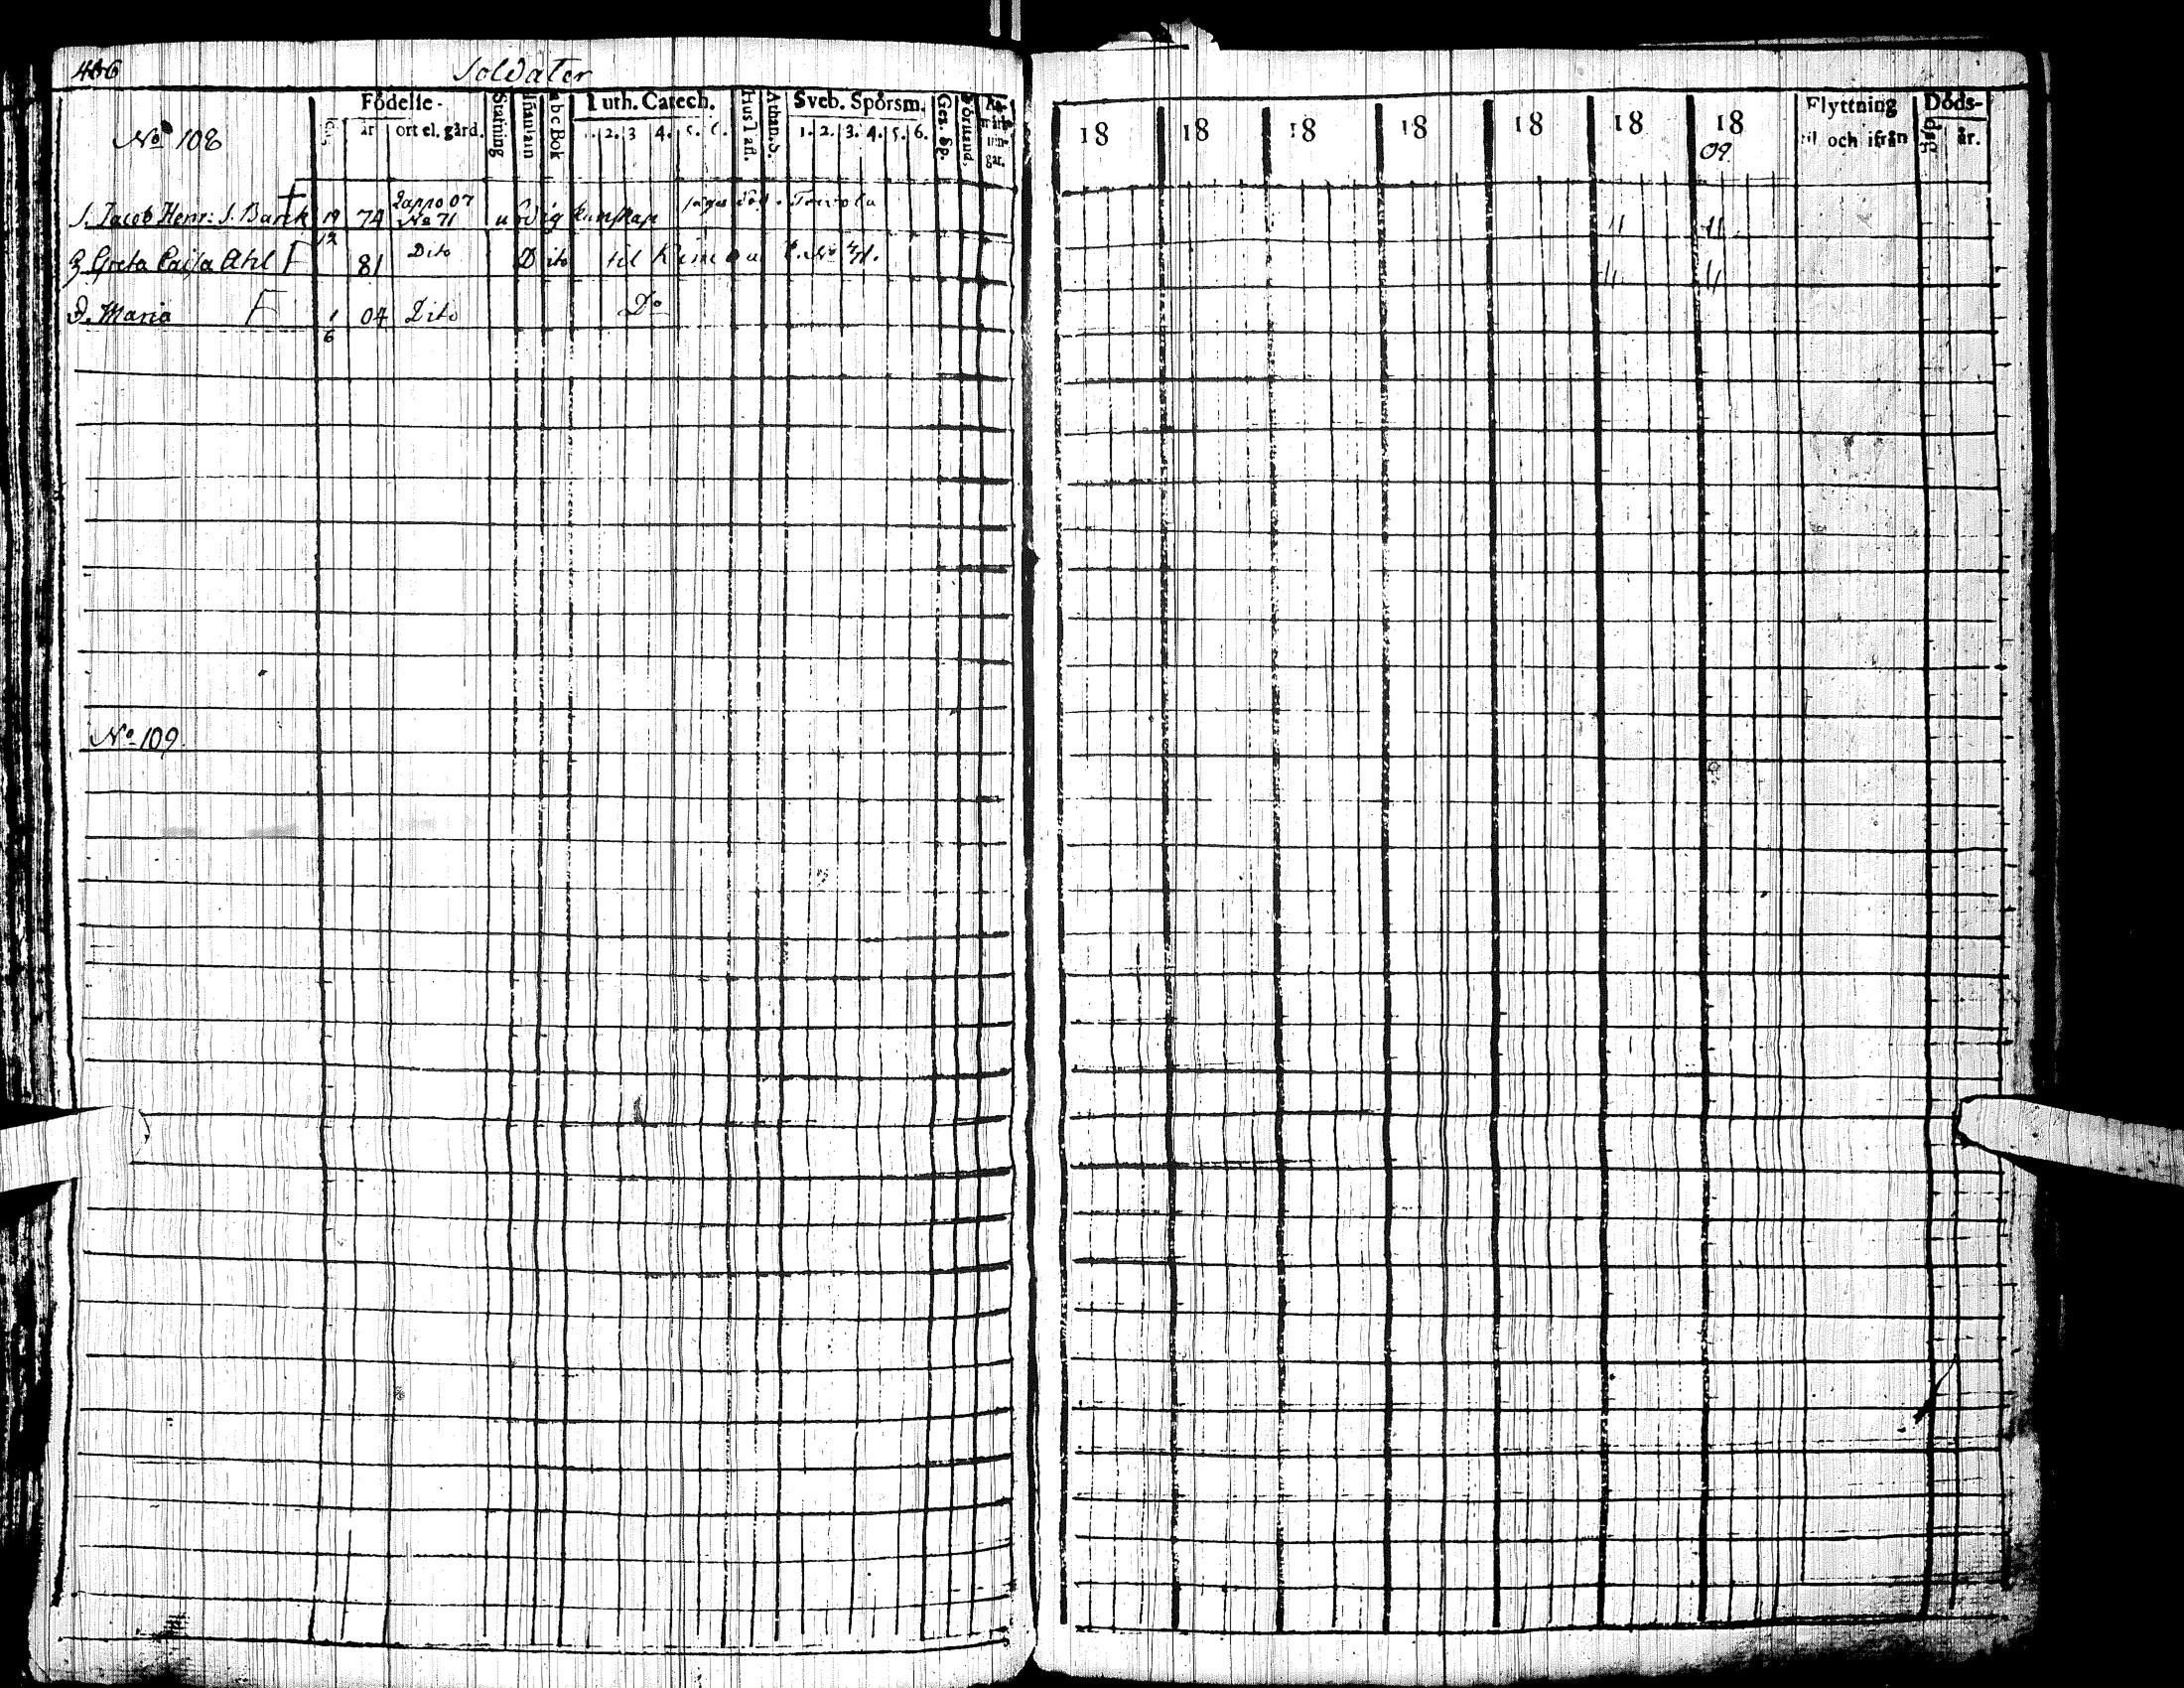 406 Soldater
Födelse- Stafning Innanläs Abc Bok Luth. Catech. Hus Tafl. Athan. S. Sveb. Spörsm. Gez. Sp. Förstånd.
år ort el. gård. 1. 2. 3 4. 5. 6. 1. 2. 3. 4. 5. 6.
No 108
18 18 18 18 18 18 18 09 Flyttning til och ifrån Döds- dag år.
S. Jacob Henr: S. Barck F 19 12 74 Lappo 07 No 71 nödig kunskap säges död.
H. Greta Caisa Ahl F 81 Dito Dito til No 71.
D. Maria F 1 6 04 Dito Do
No 109